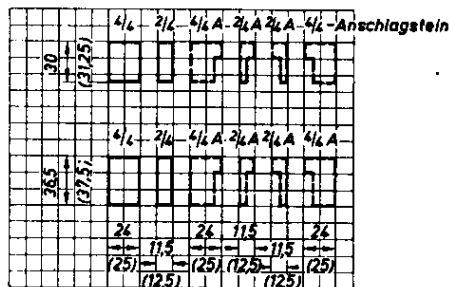 4/4 2/4 4/4 A 2/4 A 2/4 A 4/4 - Anschlagstein
30
(31,25)
4/4 2/4 4/4 A 2/4 A 2/4 A 4/4 A
36,5
(37,5)
24 24 11,5 24
11,5 11,5
(25) (25) (12,5) (25)
(12,5) (12,5)